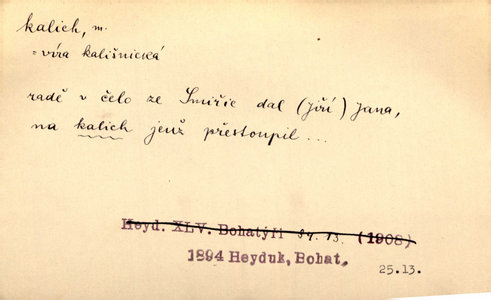 kalich, m.
= víra kališnická
radě v čelo ze Smiřic dal (Jiří) Jana,
na kalich jenž přestoupil...
Heyd. XLV. Bohatýři 13. (1908)
1894 Heyduk, Bohat.
25.13.